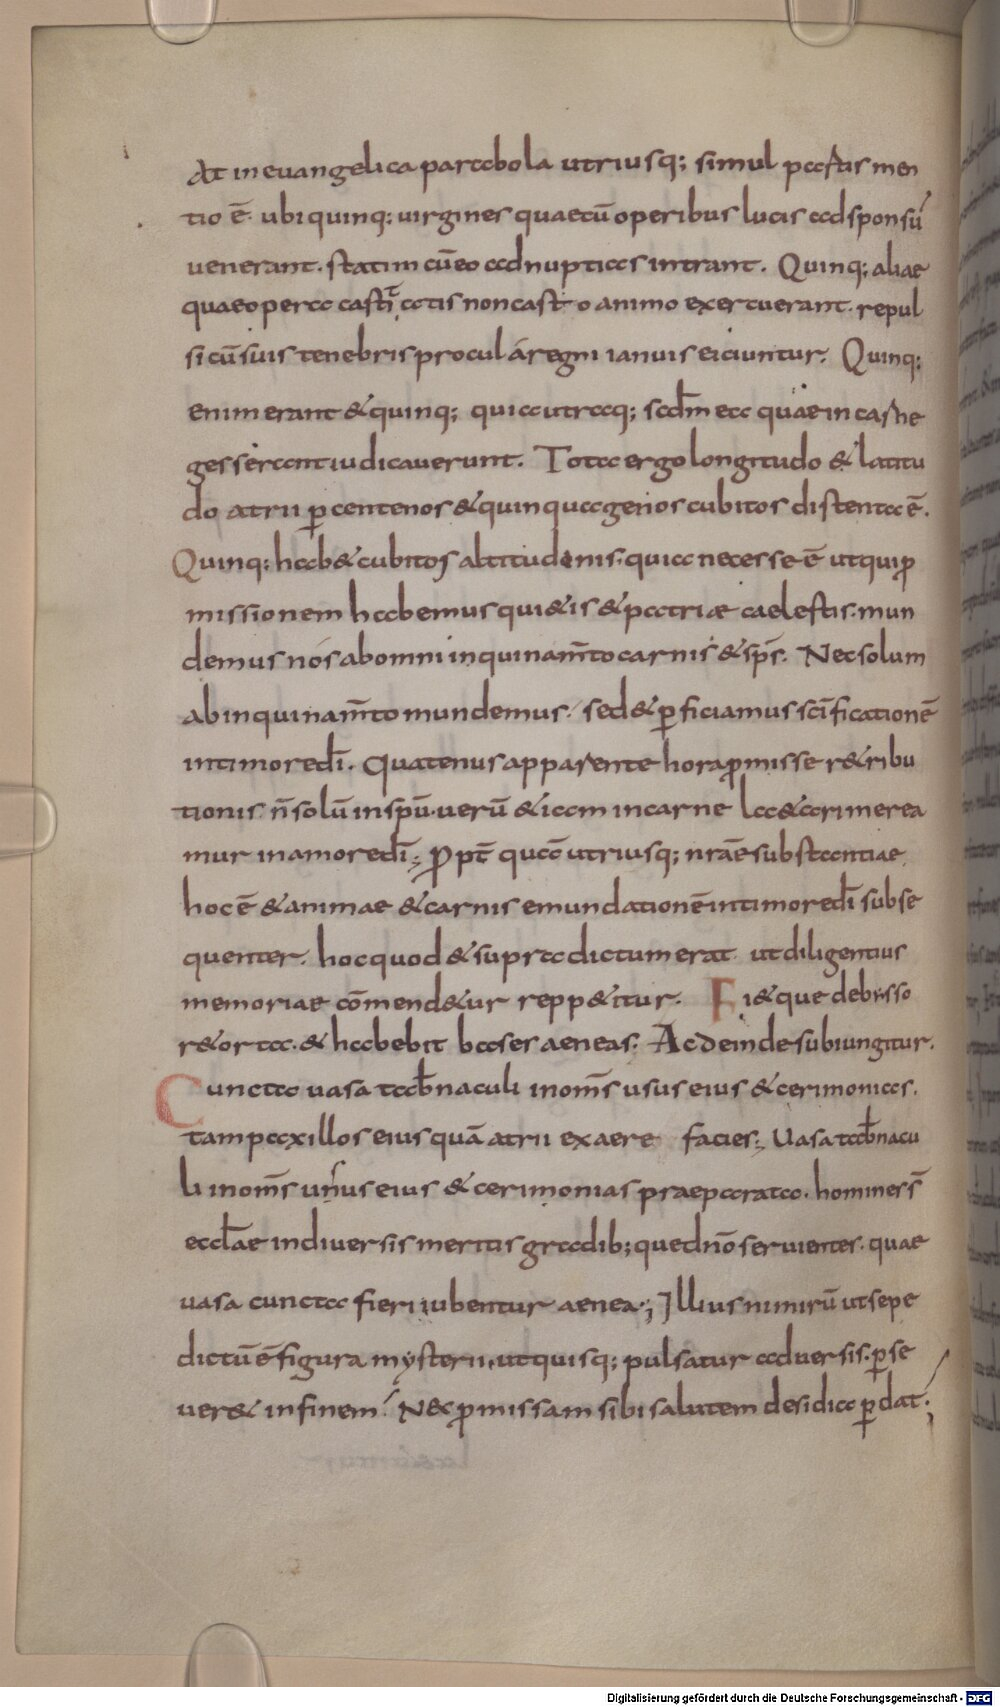 At in euangelica parabola utriusq; simul partis men
tio ē. ubi quinq; uirgines quae cū operibus lucis ad sponsū
uenerant. statim cū eo ad nuptias intrant. Quinq; aliae
quae opera castitatis non casto animo exercuerant. repul
si cū suis tenebris procul á regni ianuis eiciuntur. Quinq;
enim erant & quinq; quia utraq; sed̄m ea quae in carne
gesserant iudicauerunt. Tota ergo longitudo & latitu
do atrii ꝑ centenos & quinquagenos cubitos distenta ē.
Quinq; hab& cubitos altitudinis. quia necesse ē ut qui ꝓ
missionem habemus qui&is & patriæ caelestis. mun
demus nós ab omni inquinam̄to carnis & sp̄s. Nec solum
ab inquinam̄to mundemus. sed & ꝑficiamus sc̄ificationē
in timore dī. Quatenus apparente hora ꝓmisse r&ribu
tionis n̄ solū in sp̄u. uerū & iam in carne la&ari merea
mur in amore dī; Ꝓpt̄ quā utriusq; nr̄ae substantiae
hoc ē & animae & carnis emundationē in timore dī subse
quenter. hoc quod & supra dictum erat ut diligentius
memoriae cōmend&ur repp&itur. Fi& que de bisso
r&orta. & habebit bases aeneas; Ac deinde subiungitur.
Cuncta uasa tab̄naculi in om̄s usus eius & cerimonias.
tam paxillos eius quā atrii ex aere facies; Uasa tab̄nacu
li in om̄s usus eius & cerimonias praeparata. homines s̄
eccl̄ae in diuersis meritis gradib; que dn̄o seruientes. quae
uasa cuncta fieri iubentur aenea; Illius nimirū ut sepe
dictū ē figura mysterii. ut quisq; pulsatur aduersis. ꝑse
uer& in finem. Nec ꝓmissam sibi salutem desidia ꝑdat;